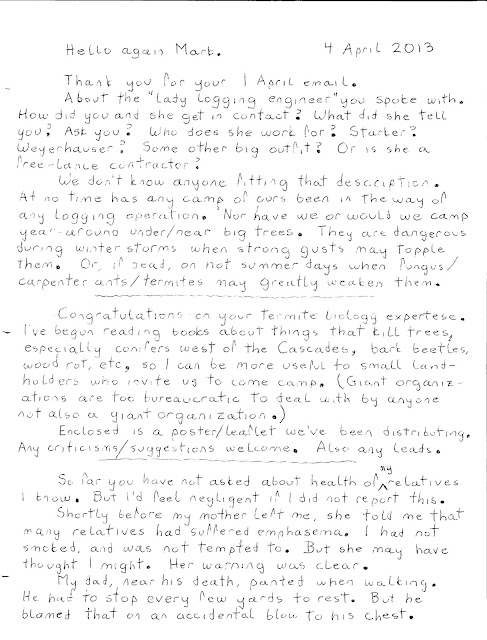 Hello again Mark. 4 April 2013
Thank you for your 1 April email.
About the "lady logging engineer" you spoke with.
How did you and she get in contact? What did she tell
you? Ask you? Who does she work for? Starker?
Weyerhauser? Some other big outfit? Or is she a
free-lance contractor?
We don't know anyone fitting that description.
At no time has any camp of ours been in the way of
any logging operation. Nor have we or would we camp
year-around under/near big trees. They are dangerous
during winter storms when strong gusts may topple
them. Or, if dead, on hot summer days when fungus/
carpenter ants/termites may greatly weaken them.
Congratulations on your termite biology expertese.
I've begun reading books about things that kill trees,
especially conifers west of the Cascades, bark beetles,
wood rot, etc, so I can be more useful to small land-
holders who invite us to come camp. (Giant organiz-
ations are too bureaucratic to deal with by anyone
not also a giant organization.)
Enclosed is a poster/leaflet we've been distributing.
Any criticisms/suggestions welcome. Also any leads.
So far you have not asked about health of my relatives
I know. But I'd feel negligent if I did not report this.
Shortly before my mother left me, she told me that
many relatives had suffered emphasema. I had not
smoked, and was not tempted to. But she may have
thought I might. Her warning was clear.
My dad, near his death, panted when walking.
He had to stop every few yards to rest. But he
blamed that on an accidental blow to his chest.